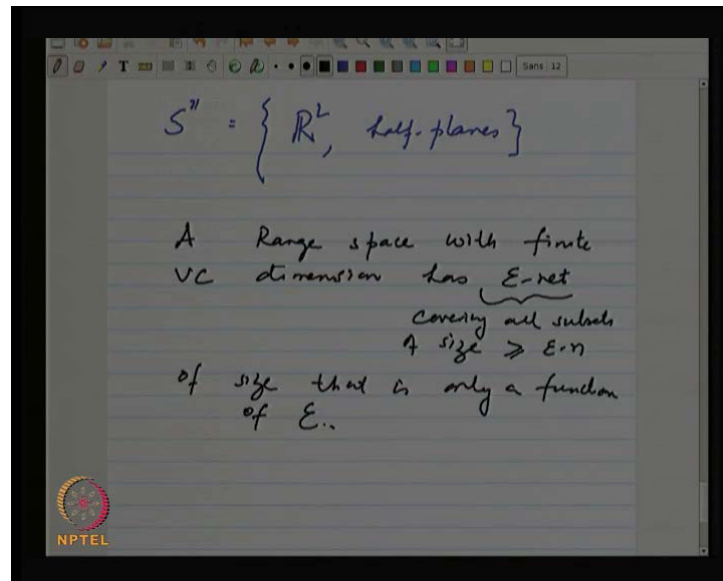 T
Sans 12
S" = { R², half-planes }
A Range space with finite
VC dimension has ε-net
Covering all subsets
of size ≥ ε·n
of size that is only a function
of ε..
NPTEL